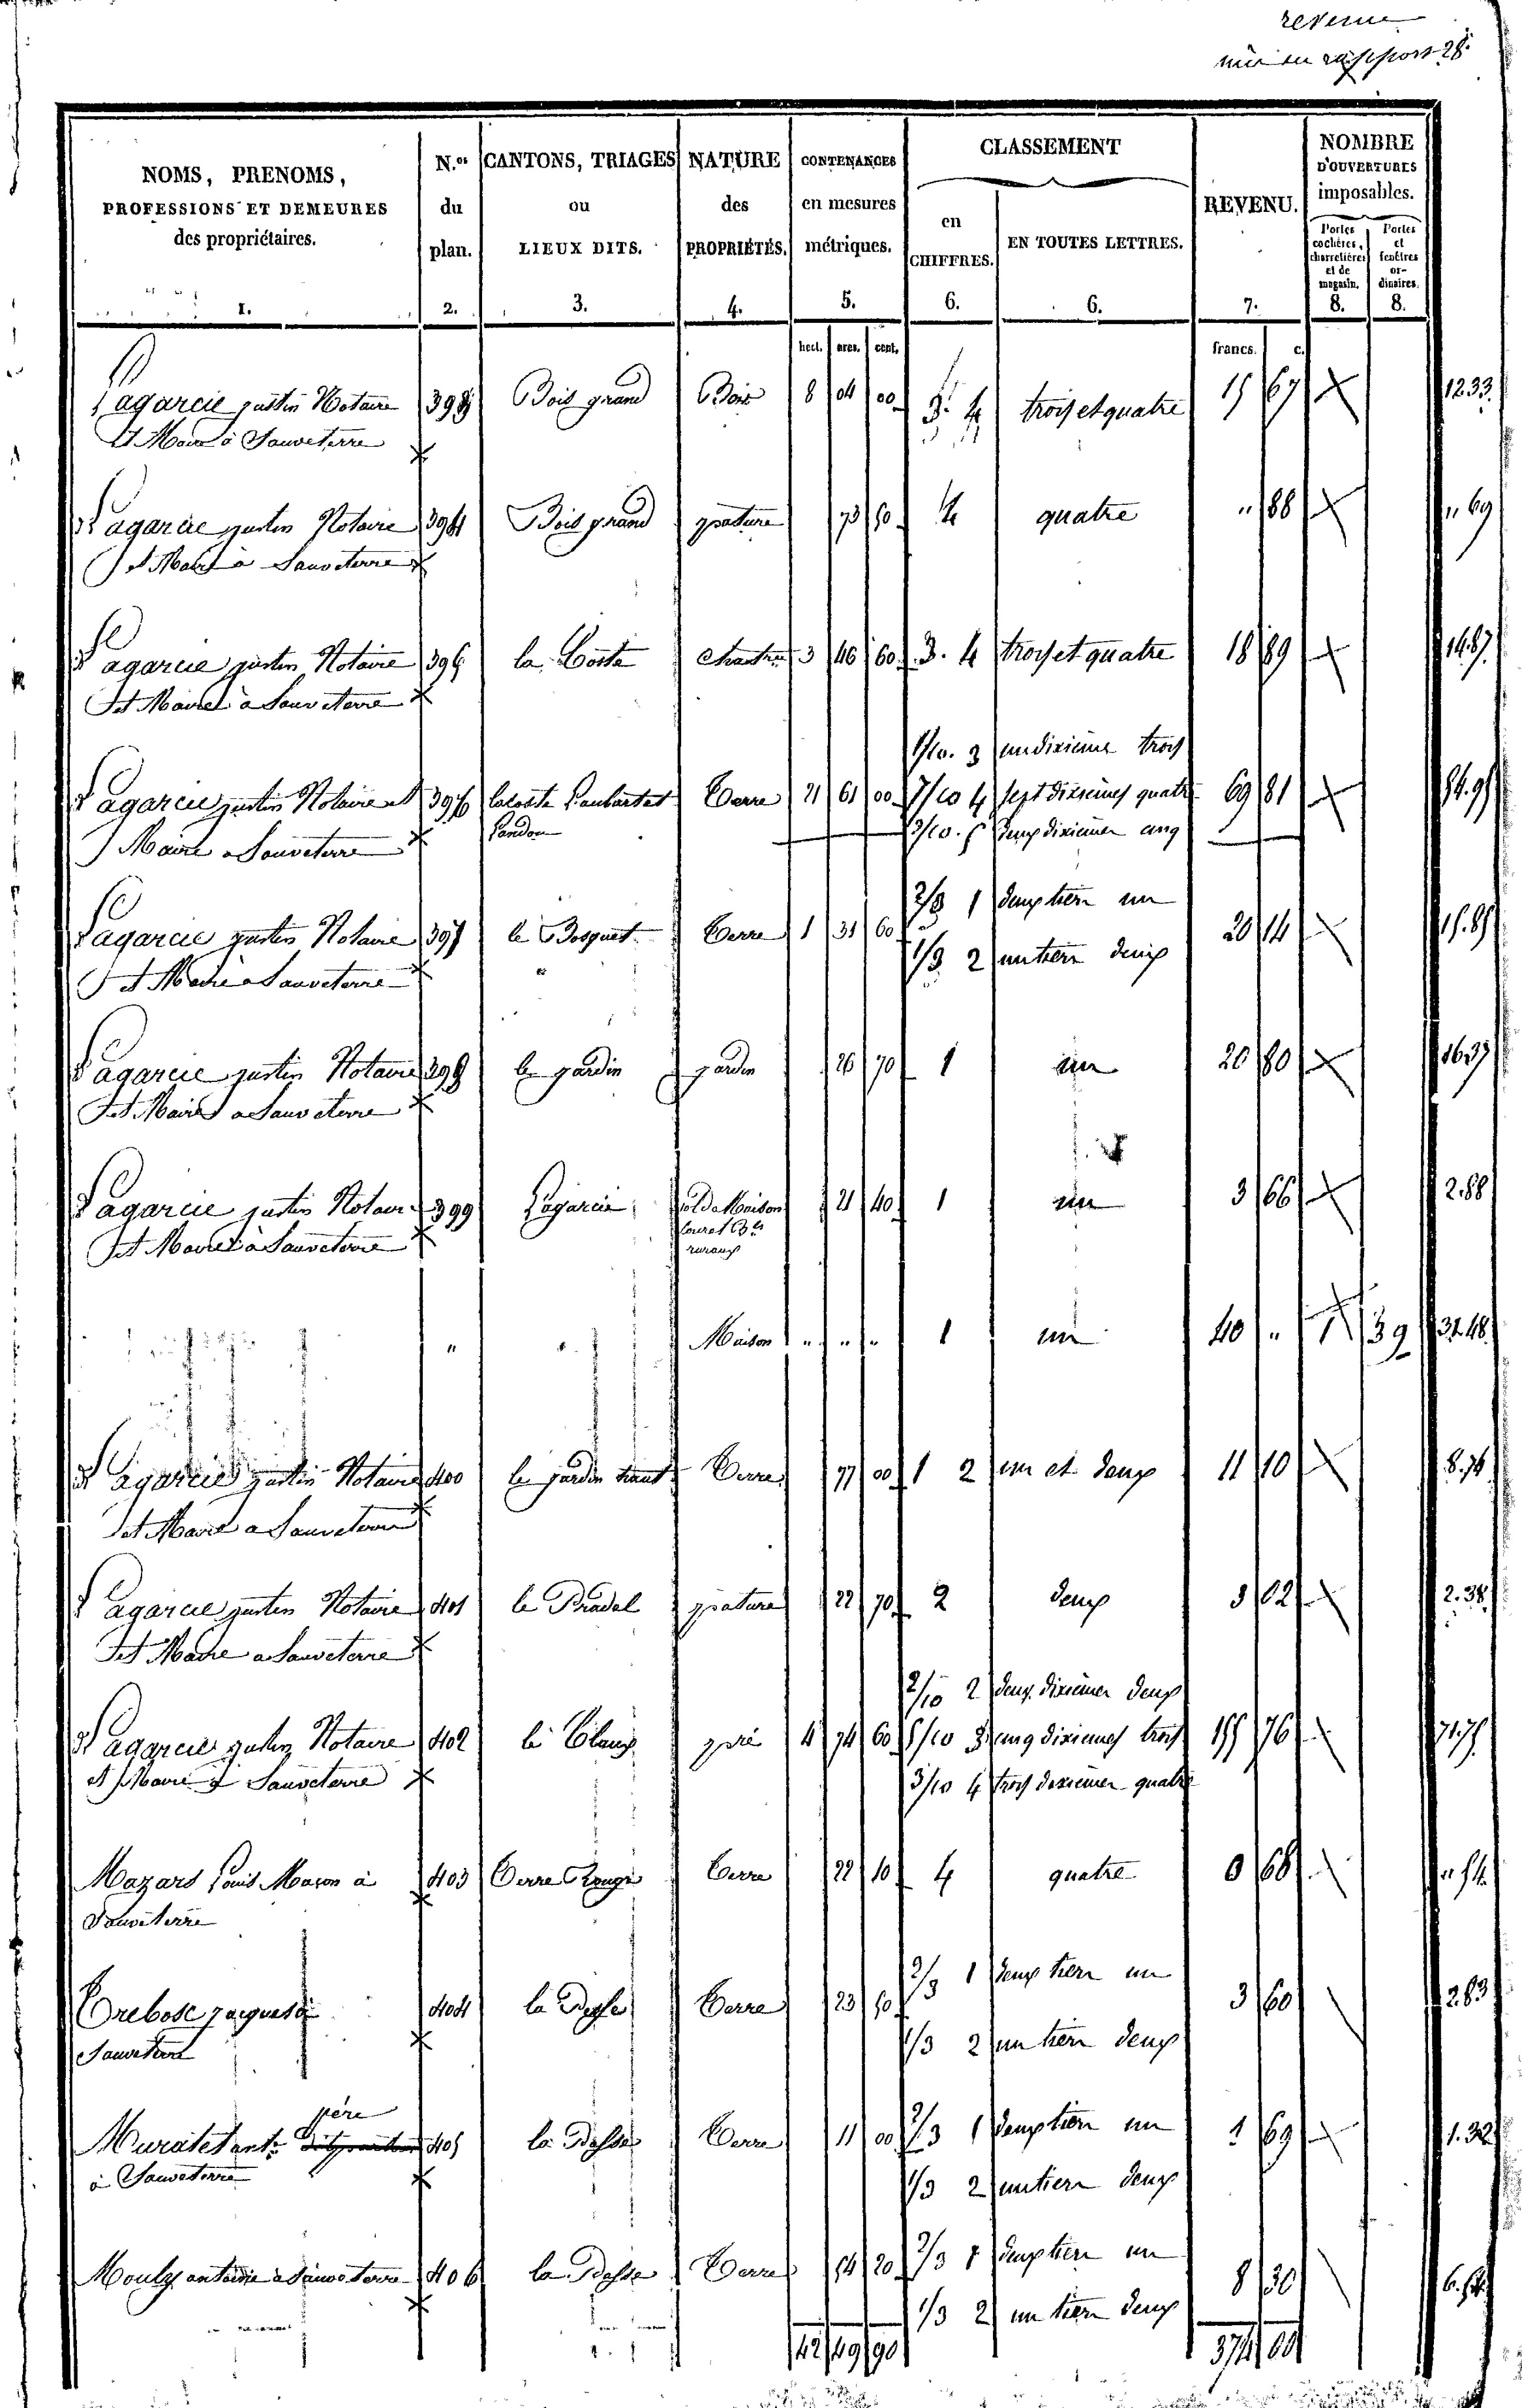 revenu
mis en rapport 28.
NOMS, PRENOMS,
PROFESSIONS ET DEMEURES
des propriétaires.
1.
N.os
du
plan.
2.
CANTONS, TRIAGES
ou
LIEUX DITS.
3.
NATURE
des
PROPRIÉTÉS.
4.
CONTENANCES
en mesures
métriques.
5.
CLASSEMENT
en
CHIFFRES.
6.
EN TOUTES LETTRES.
6.
REVENU.
7.
NOMBRE
D'OUVERTURES
imposables.
Portes
cochères,
charretières
et de
magasin.
8.
Portes
et
fenêtres
or-
dinaires.
8.
hect. ares. cent.
francs. c.
Lagarcie justin Notaire 393 Bois grand Bois 8 04 00 3. 4 trois et quatre 15 67 12.33
et Maire à Sauveterre
Lagarcie justin Notaire 394 Bois grand pature 73 50 4 quatre " 88 " 69
et Maire à Sauveterre
Lagarcie justin Notaire 395 la Coste 3 46 60 3. 4 trois et quatre 18 89 14.87
et Maire à Sauveterre
1/10. 3 un dixieme trois
Lagarcie justin Notaire et 396 lacoste 21 61 00 7/10 4 sept dixiemes quatre 69 81 54.95
Maire a Sauveterre 2/10. 5 deux dixiemes cinq
2/3 1 deux tiers un
Lagarcie justin Notaire 397 le Bosquet Terre 1 31 60 20 14 15.85
et Maire a Sauveterre 1/3 2 un tiers deux
Lagarcie justin Notaire 398 le jardin jardin 26 70 1 un 20 80 16.37
et Maire a Sauveterre
Lagarcie justin Notaire 399 Lagarcie sol de Maison 21 40 1 un 3 66 2.88
et Maire à Sauveterre couret Bts
ruraux
" " Maison " " " 1 un 40 " 39 31.48
Lagarcie justin Notaire 400 le jardin haut Terre 77 00 1 2 un et deux 11 10 8.74
et Maire a Sauveterre
Lagarcie justin Notaire 401 le Pradel pature 22 70 2 deux 3 02 2.38
et Maire a Sauveterre
2/10 2 deux dixiemes deux
Lagarcie justin Notaire 402 le Claux pré 4 74 60 5/10 3 cinq dixiemes trois 155 76
et Maire à Sauveterre 3/10 4 trois dixiemes quatre
Mazars Louis Maçon à 403 Terre Rouge Terre 22 10 4 quatre 0 68 " 54
Sauveterre
2/3 1 deux tiers un
Trebosc jacques à 404 Terre 23 50 3 60 2.83
Sauveterre 1/3 2 un tiers deux
père
Muratet ant. 405 Terre 11 00 2/3 1 deux tiers un 1 69 1.32
à Sauveterre 1/3 2 un tiers deux
Mouly antoine a Sauveterre 406 Terre 54 20 2/3 1 deux tiers un 8 30 6.54
1/3 2 un tiers deux
42 49 90 374